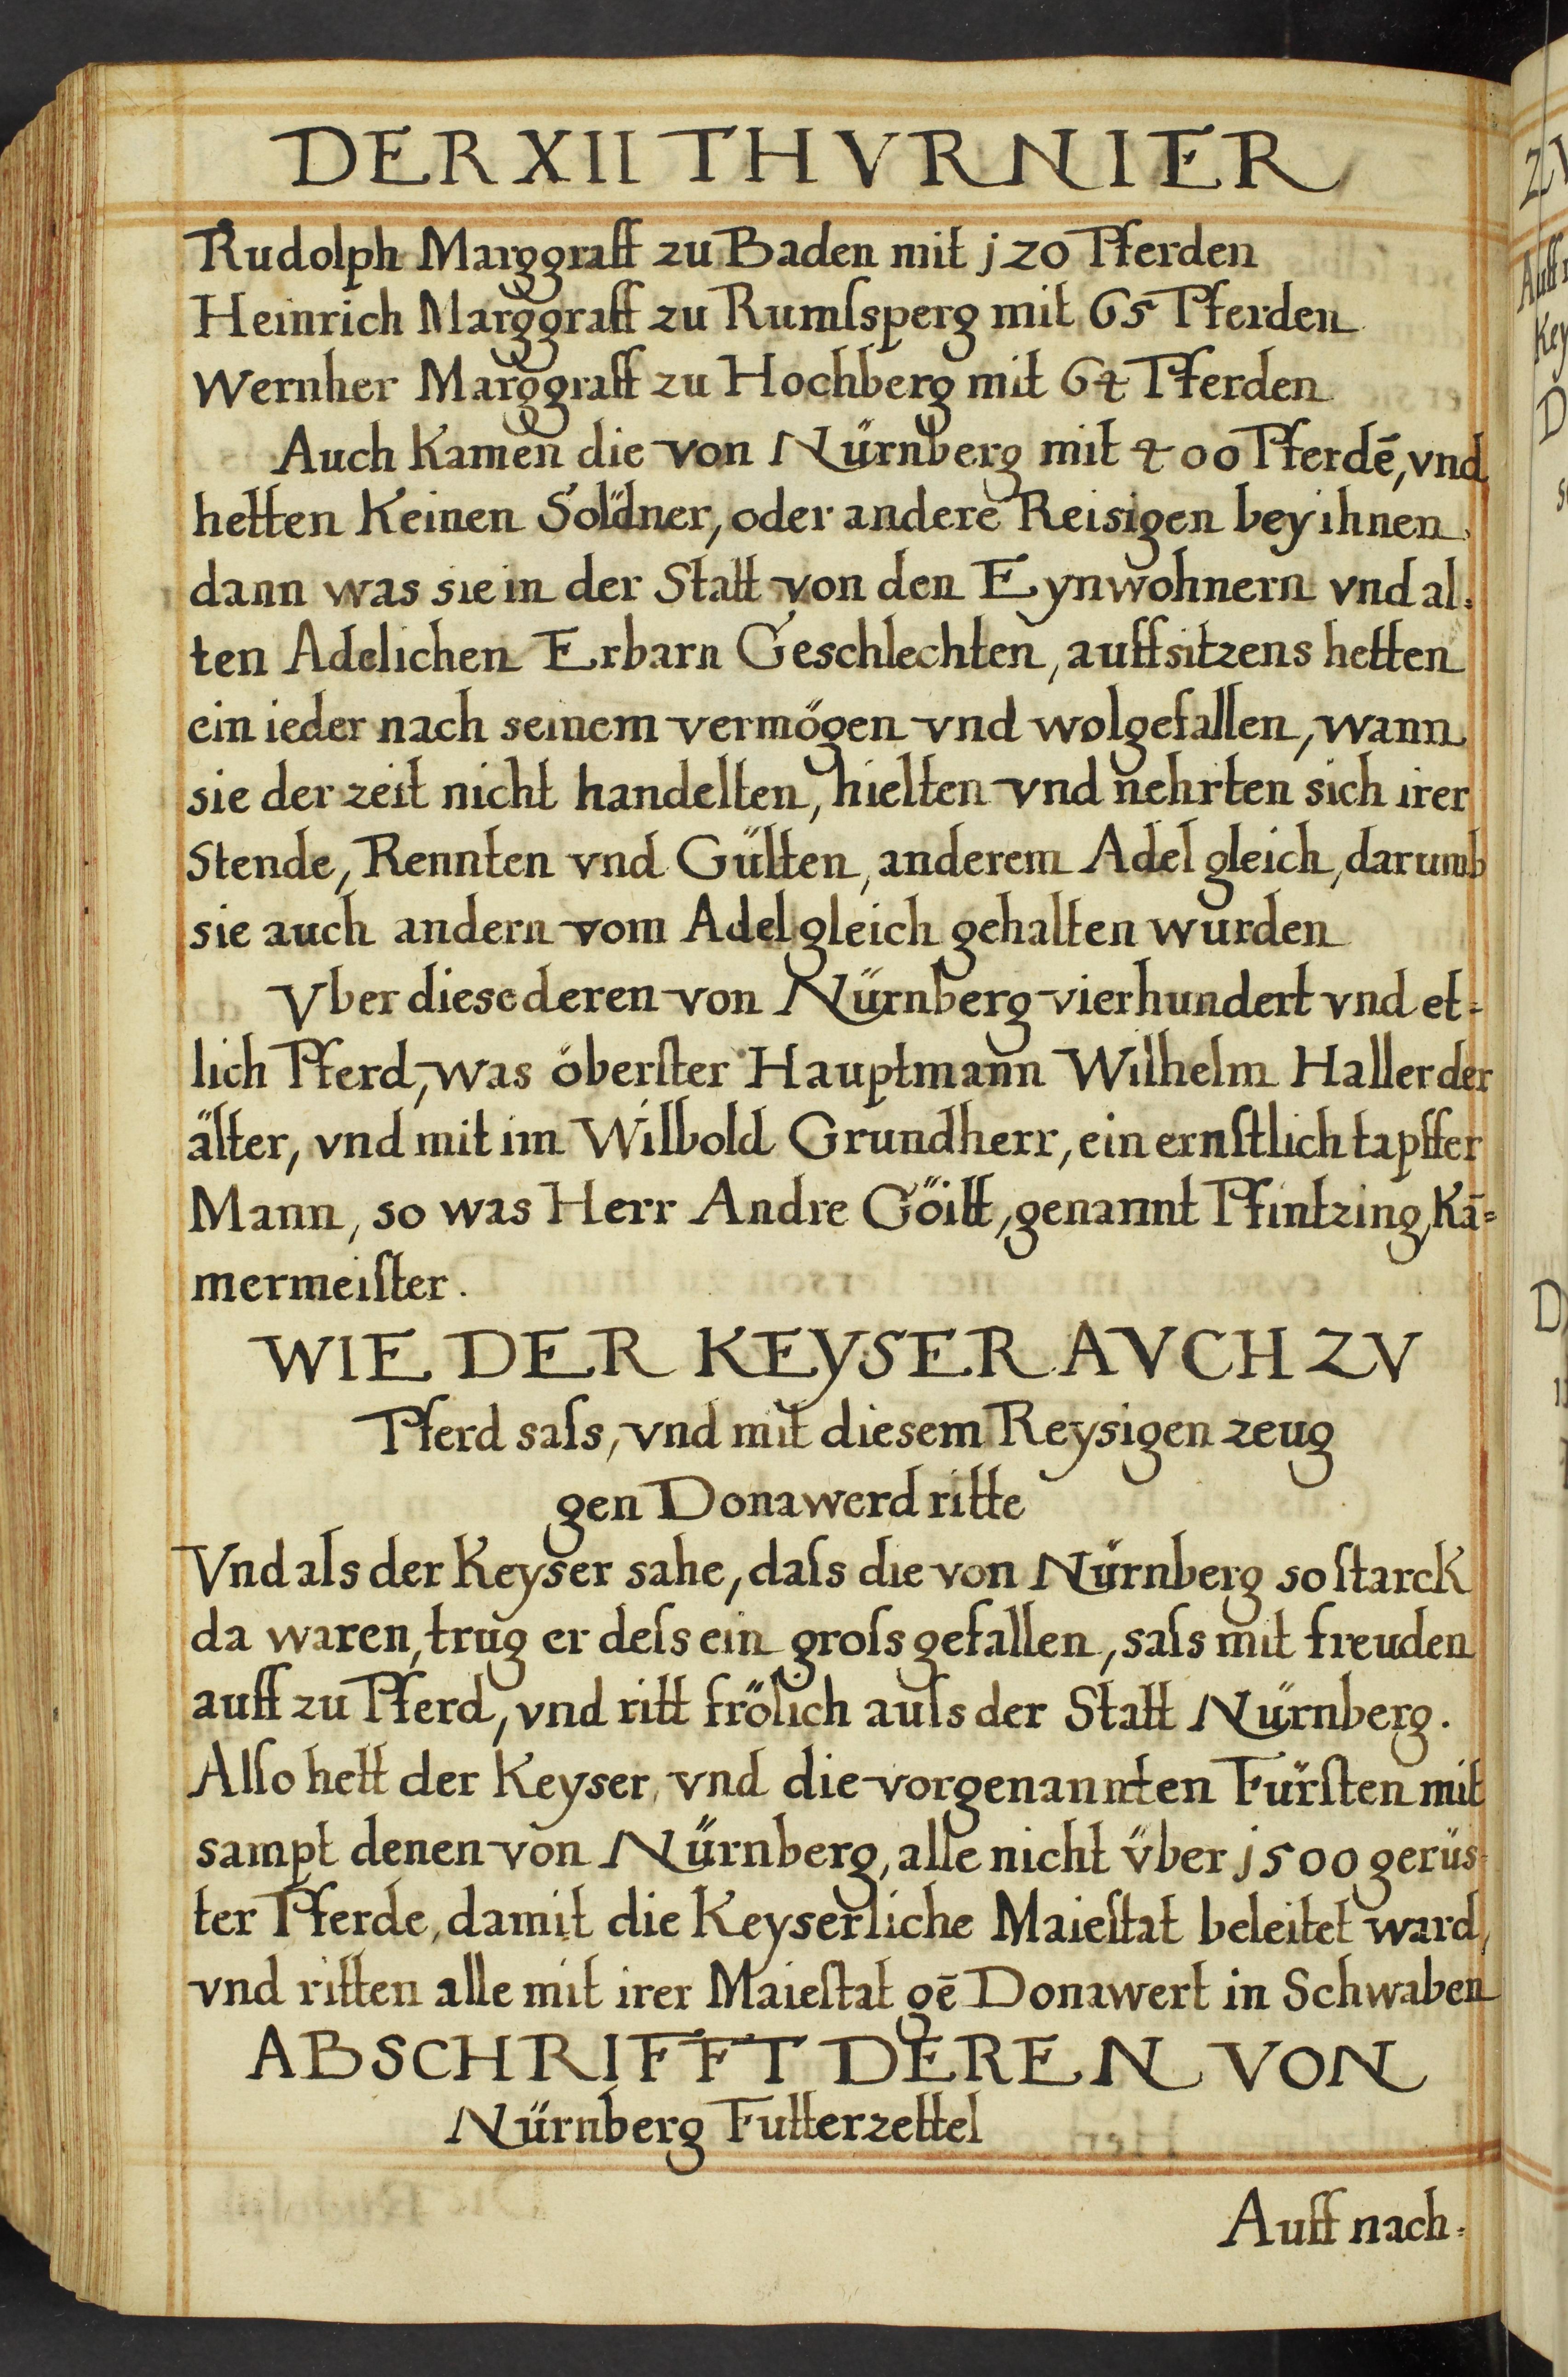 DER XII THVRNIER
Rudolph Marggraff zu Baden mit j20 Pferden
Heinrich Marggraff zu Rumſsperg mit 65 Pferden
Wernher Marggraff zu Hochberg mit 64 Pferden
Auch Kamen die von Nürnberg mit 400 Pferdē, vnd
hetten Keinen Söldner, oder andere Reisigen bey ihnen,
dann was sie in der Statt von den Eynwohnern vnd al=
ten Adelichen Erbarn Geschlechten, auffsitzens hetten
ein ieder nach seinem vermögen vnd wolgefallen, wann
sie der zeit nicht handelten, hielten vnd nehrten sich irer
Stende, Rennten vnd Gülten, anderem Adel gleich, darumb
sie auch andern vom Adel gleich gehalten wurden
Vber diese deren von Nürnberg vierhundert vnd et=
lich Pferd, was öberſter Hauptmann Wilhelm Haller der
älter, vnd mit im Wilbold Grundherr, ein ernſtlich tapffer
Mann, so was Herr Andre Göitt, genannt Pfintzing, Kā=
mermeiſter.
WIE DER KEYSER AVCH ZV
Pferd saſs, vnd mit diesem Reysigen zeug
gen Donawerd ritte
Vnd als der Keyser sahe, daſs die von Nürnberg so ſtarck
da waren, trug er deſs ein groſs gefallen, saſs mit freuden
auff zu Pferd, vnd ritt frölich auſs der Statt Nürnberg.
Alſo hett der Keyser, vnd die vorgenannten Fürſten mit
sampt denen von Nürnberg, alle nicht vber j500 gerüs=
ter Pferde, damit die Keyserliche Maieſtat beleitet ward,
vnd ritten alle mit irer Maieſtat gē Donawert in Schwaben
ABSCHRIFFT DEREN VON
Nürnberg Futterzettel
Auff nach=